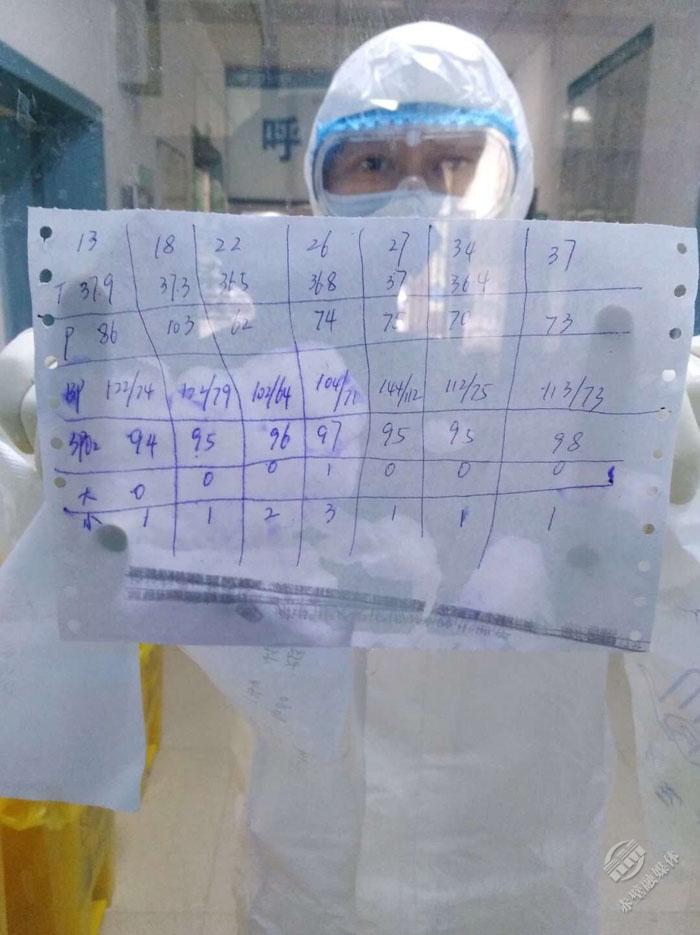 呼
13 18 22 26 27 34 37
T 37.9 37.3 36.5 36.8 37 36.4
P 86 103 62 74 75 70 73
BP 122/74 122/79 102/64 104/71 144/112 112/75 113/73
SPO2 94 95 96 97 95 95 98
大 0 0 0 1 0 0 0
小 1 1 2 3 1 1 1
赤壁融媒体